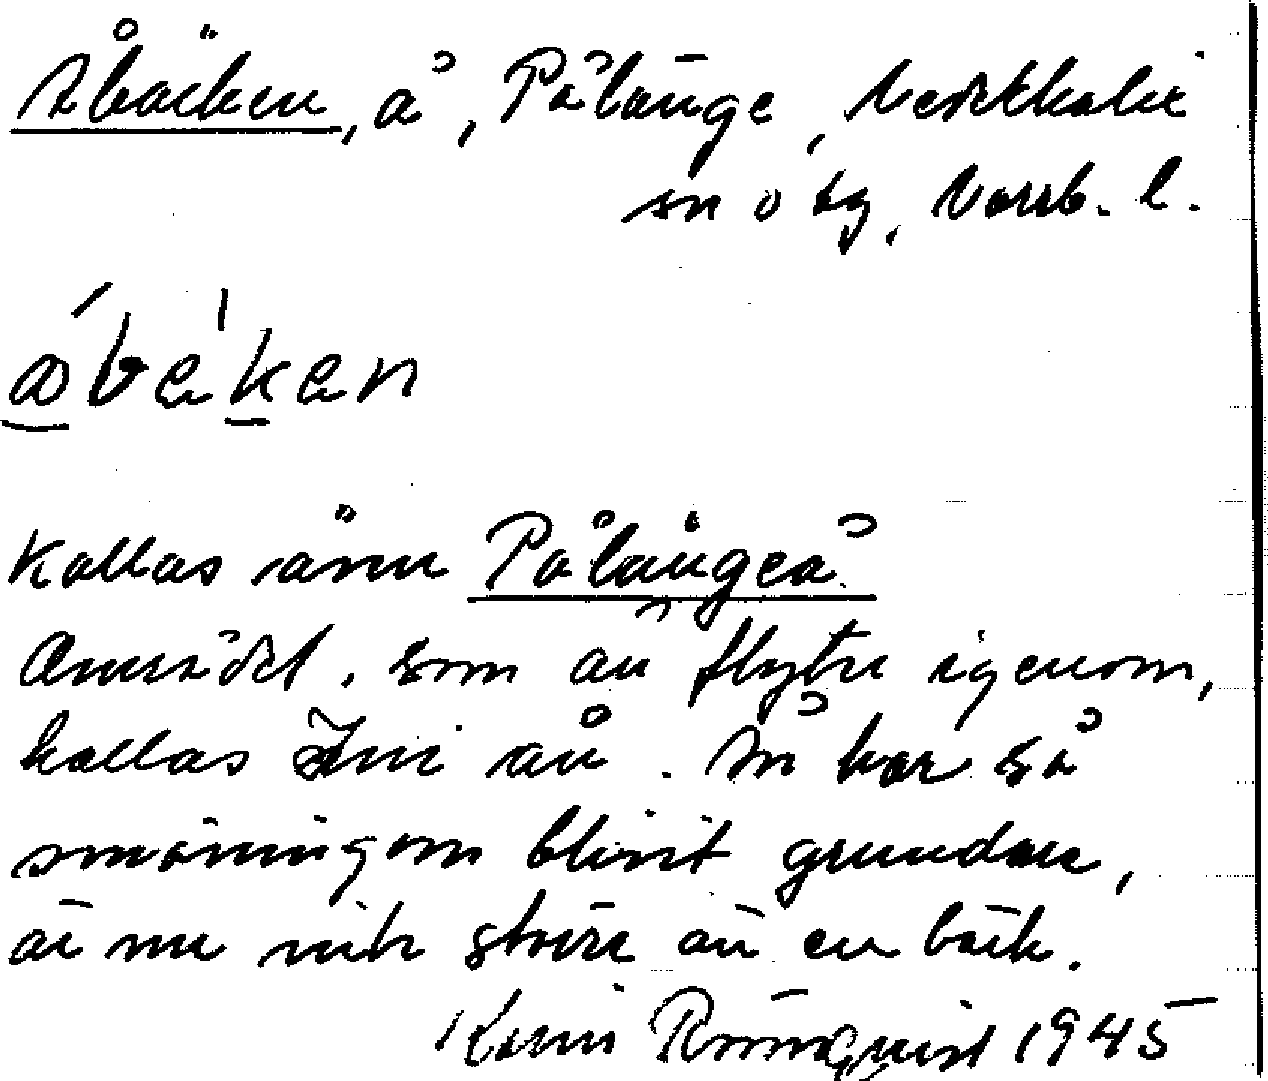 Åbäcken, å, Pålänge, Nederkalix
sn o tg, Norrb. l.
åbeken
Kallas även Pålängeå.
Området, som ån flyter igenom,
kallas Ini ån. Ån har så
småningom blivit grundare,
är nu inte större än en bäck.
Karin Rönnquist 1945